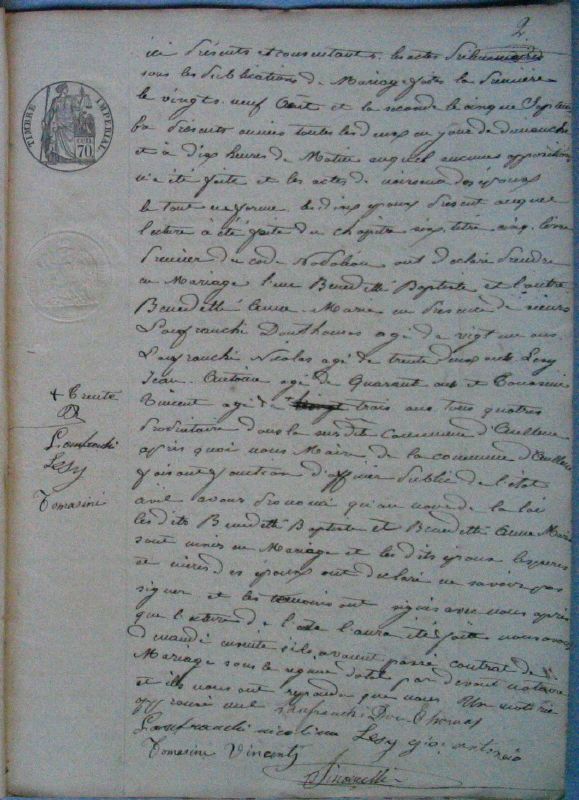 2
ici présents et consentants, les actes préliminaires
sous les publications de Mariage faites la premiere
le vingt neuf Août et la seconde le cinq Septem
bre présente année toutes les deux un jour de dimanche
et à dix heures de Matin auquel aucune opposition
n'a été faite et les actes de naissance des époux
le tout en forme les dits époux présent auquel
lecture a été faite du chapitre six titre cinq livre
premier du code Napoléon ont déclaré prendre
en Mariage l'un Benedetti Baptiste et l'autre
Benedetti Anna Marie en présence de sieurs
Lanfranchi Don Thomas agé de vigt un ans
Lanfranchi Nicolas agé de trente deux ans Lesy
Jean Antoine agé de Quarant ans et Tomasini
Vincent agé de + vingt trois ans tous quatres
propriétaire dans la sus dit commune d'Aullene
après quoi nous Maire de la commune d'Aullene
faisant fonction d'officier public de l'état
civil avons prononcé qu'au nom de la loi
les dits Benedetti Baptiste et Benedetti Anna Marie
sont unies en Mariage et les dits époux les peres
et mères des époux ont déclaré ne savoir pas
signer et les temoins ont signés avec nous après
que lecture de l'acte l'aura été faite nous avons
demandé ensuite s'ils avaient passé contrat de
Mariage sous le regime dotal par devant notaire
et ils nous ont repondu que nous Un mot rié
approuvé nul Lanfranchi Don Thomas
Lanfranchi nicolau Lesy gio: antonio
Tomasini Vincent
TIMBRE IMPERIAL
70
+ trente
Lanfranchi
Lesy
Tomasini